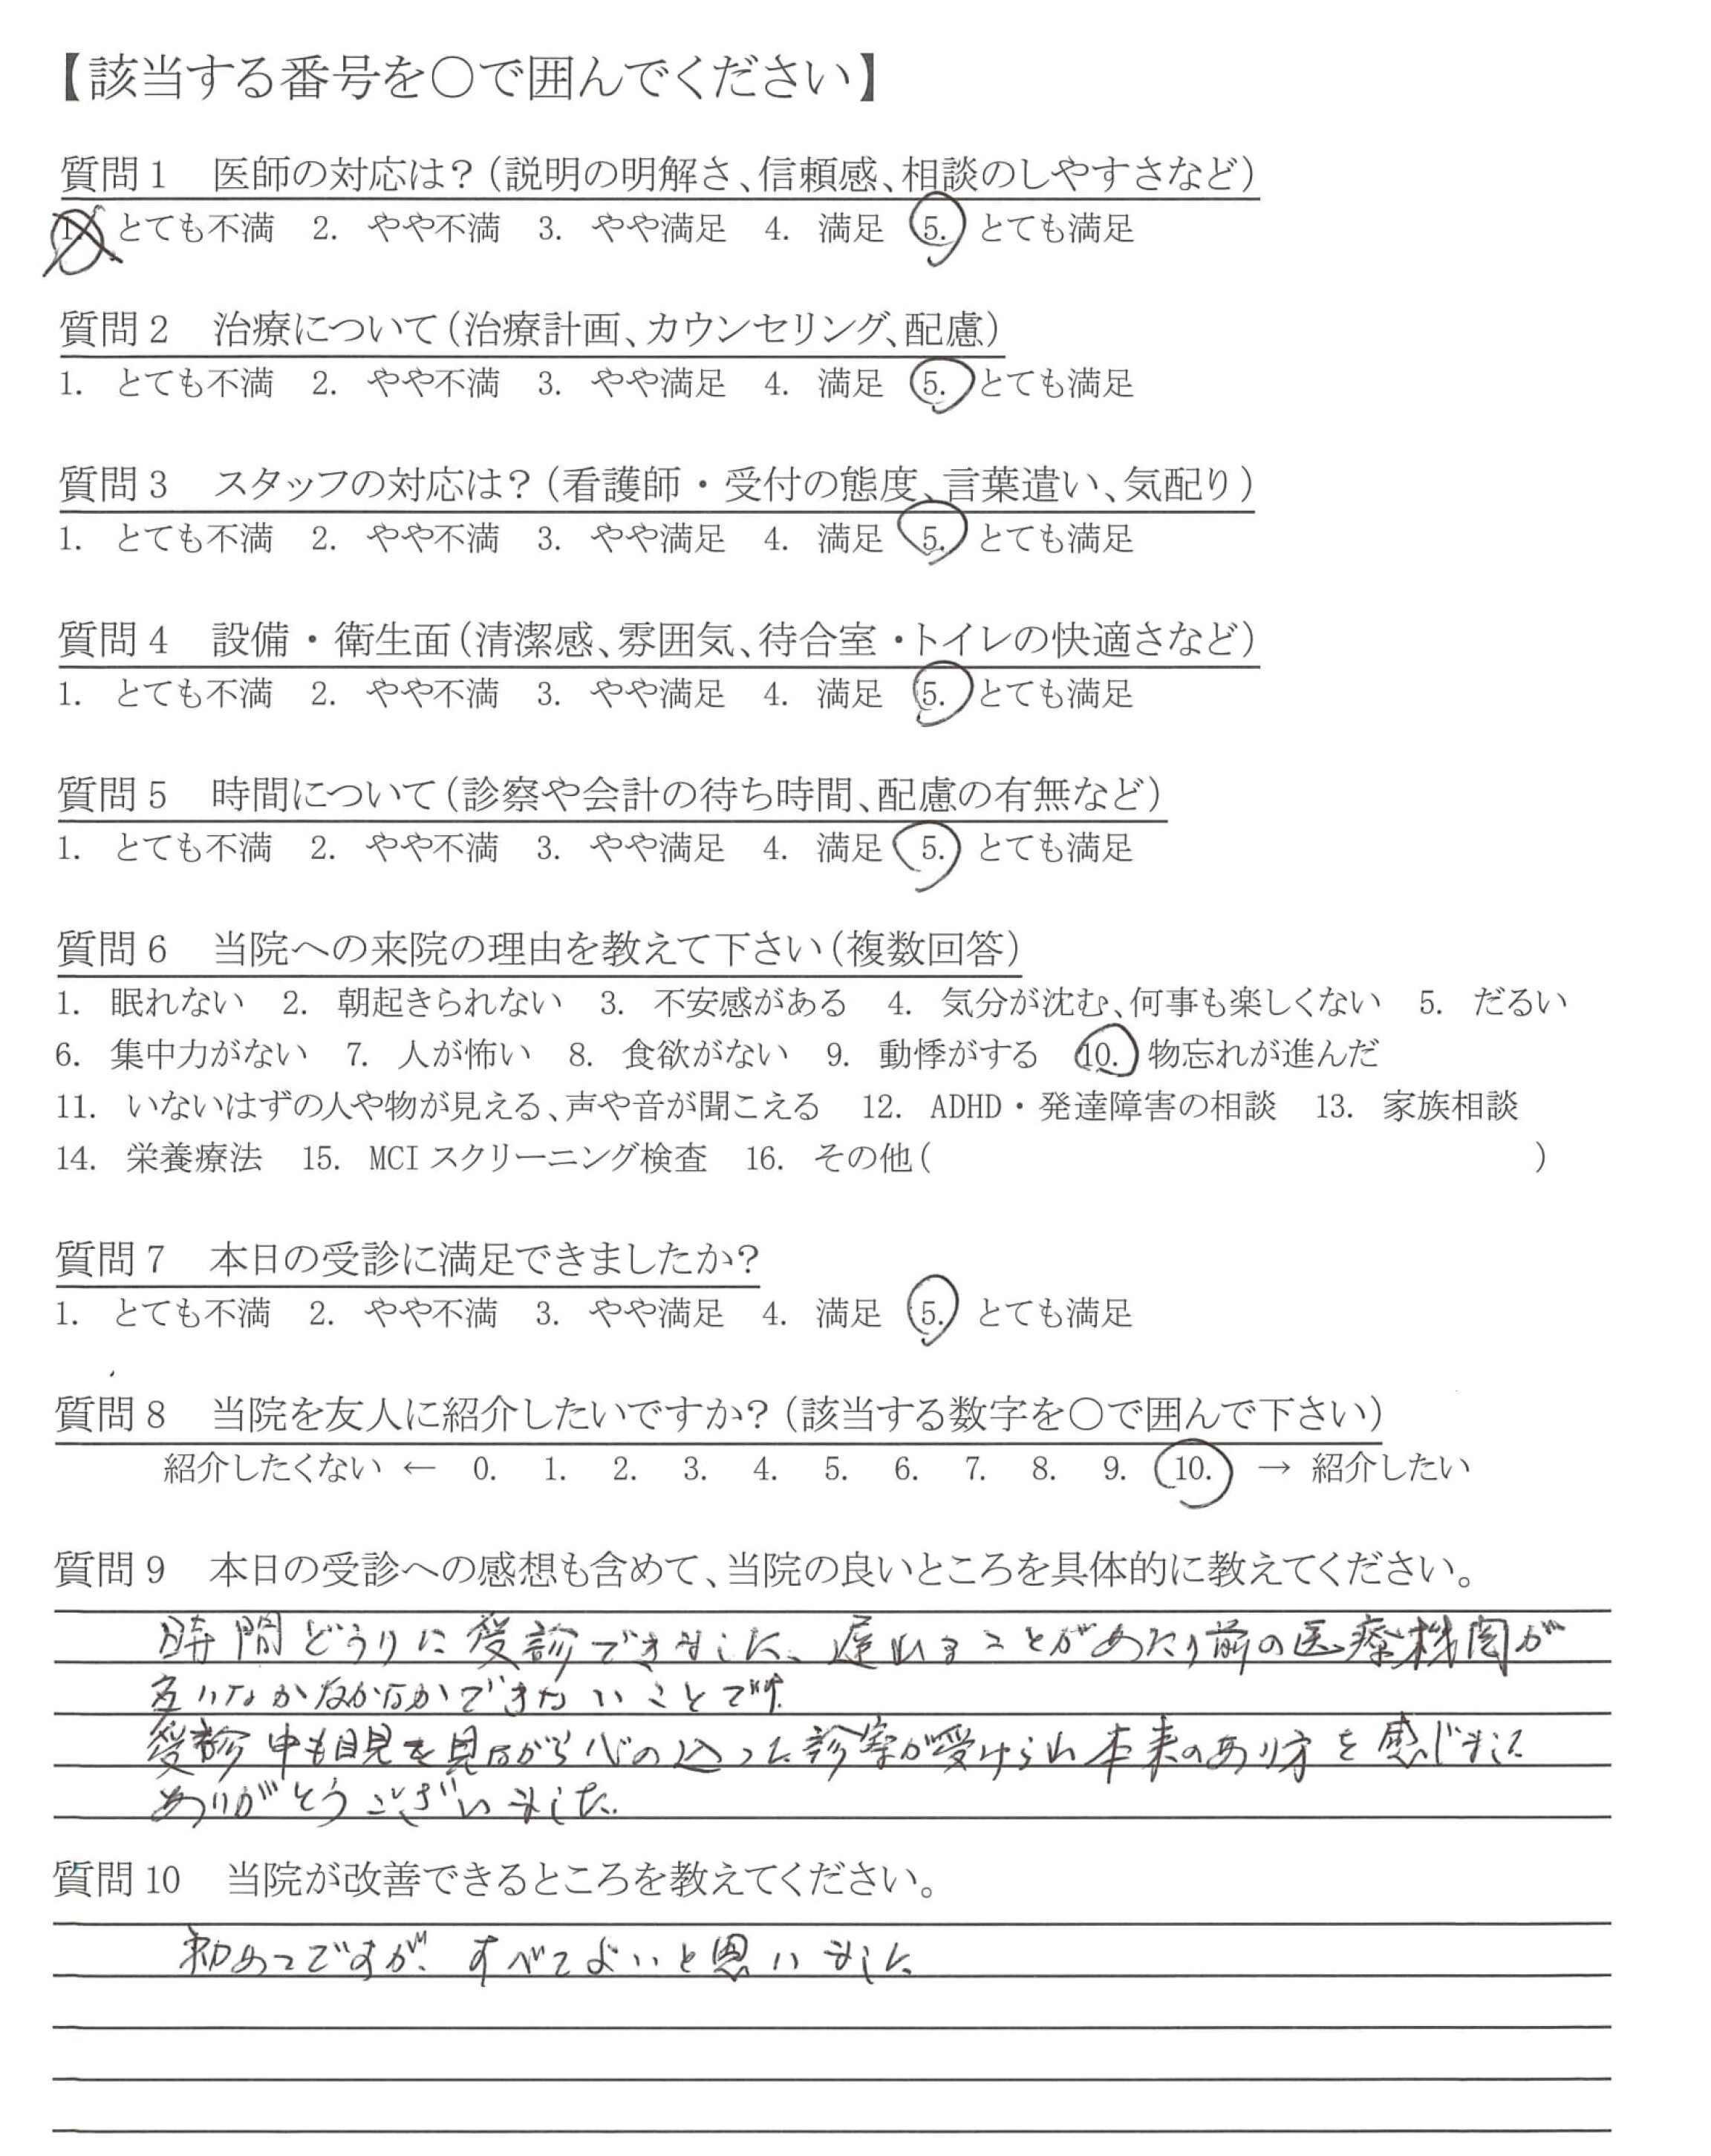 【該当する番号を〇で囲んでください】
質問1 医師の対応は?(説明の明解さ、信頼感、相談のしやすさなど)
1. とても不満 2. やや不満 3. やや満足 4. 満足 5. とても満足
質問2 治療について(治療計画、カウンセリング、配慮)
1. とても不満 2. やや不満 3. やや満足 4. 満足 5. とても満足
質問3 スタッフの対応は?(看護師・受付の態度、言葉遣い、気配り)
1. とても不満 2. やや不満 3. やや満足 4. 満足 5. とても満足
質問4 設備・衛生面(清潔感、雰囲気、待合室・トイレの快適さなど)
1. とても不満 2. やや不満 3. やや満足 4. 満足 5. とても満足
質問5 時間について(診察や会計の待ち時間、配慮の有無など)
1. とても不満 2. やや不満 3. やや満足 4. 満足 5. とても満足
質問6 当院への来院の理由を教えて下さい(複数回答)
1. 眠れない 2. 朝起きられない 3. 不安感がある 4. 気分が沈む、何事も楽しくない 5. だるい
6. 集中力がない 7. 人が怖い 8. 食欲がない 9. 動悸がする 10. 物忘れが進んだ
11. いないはずの人や物が見える、声や音が聞こえる 12. ADHD・発達障害の相談 13. 家族相談
14. 栄養療法 15. MCIスクリーニング検査 16. その他( )
質問7 本日の受診に満足できましたか?
1. とても不満 2. やや不満 3. やや満足 4. 満足 5. とても満足
質問8 当院を友人に紹介したいですか?(該当する数字を〇で囲んで下さい)
紹介したくない ← 0. 1. 2. 3. 4. 5. 6. 7. 8. 9. 10. → 紹介したい
質問9 本日の受診への感想も含めて、当院の良いところを具体的に教えてください。
時間どうりに受診できました、遅れることがあたり前の医療機関が
多いなかなかなかできないことです
受診中も目を見ながら心の込った診察が受けられ本来のあり方を感じました
ありがとうございました.
質問10 当院が改善できるところを教えてください。
初めてですが、すべてよいと思いました